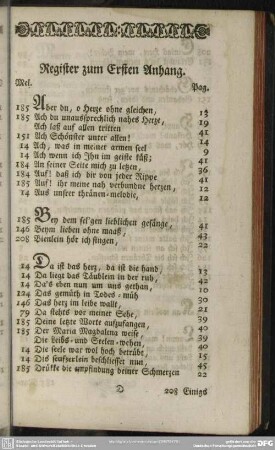 Register zum Ersten Anhang.
Mel. Pag.
185 Aber du, o Herze ohne gleichen, 13
185 Ach du unaussprechlich nahes Herze, 19
Ach laß auf allen tritten 41
151 Ach Schönster unter allen! 41
14 Ach, was in meiner armen seel 14
14 Ach wenn ich Ihn im geiste küß; 9
184 An seiner Seite mich zu lehen, 41
184 Auf! daß ich dir von jeder Rippe 36
185 Auf! ihr meine nah verbundne herzen, 12
14 Aus unsrer thränen-melodie, 12
185 Bey dem sel'gen lieblichen gesänge, 41
146 Beten lieben ohne maaß, 43
208 Bienlein hör ich singen, 22
14 Da ist das herz, da ist die hand, 13
14 Da liegt das Täublein in der ruh, 42
14 Da's eben nun um uns gethan, 10
124 Das gemüth in Todes-müh 36
146 Das herz im leibe wallt, 42
79 Da stehts vor meiner Sehe, 21
185 Deine letzte Worte aufzufangen, 39
185 Der Maria Magdalena weise, 40
Die Leibs- und Seelen-wehen, 39
14 Die seele war wol hoch betrübt, 40
14 Dis seufzerlein beschliesser nun, 15
185 Drükke die empfindung deiner Schmerzen 22
D 208 Einigs
DFG